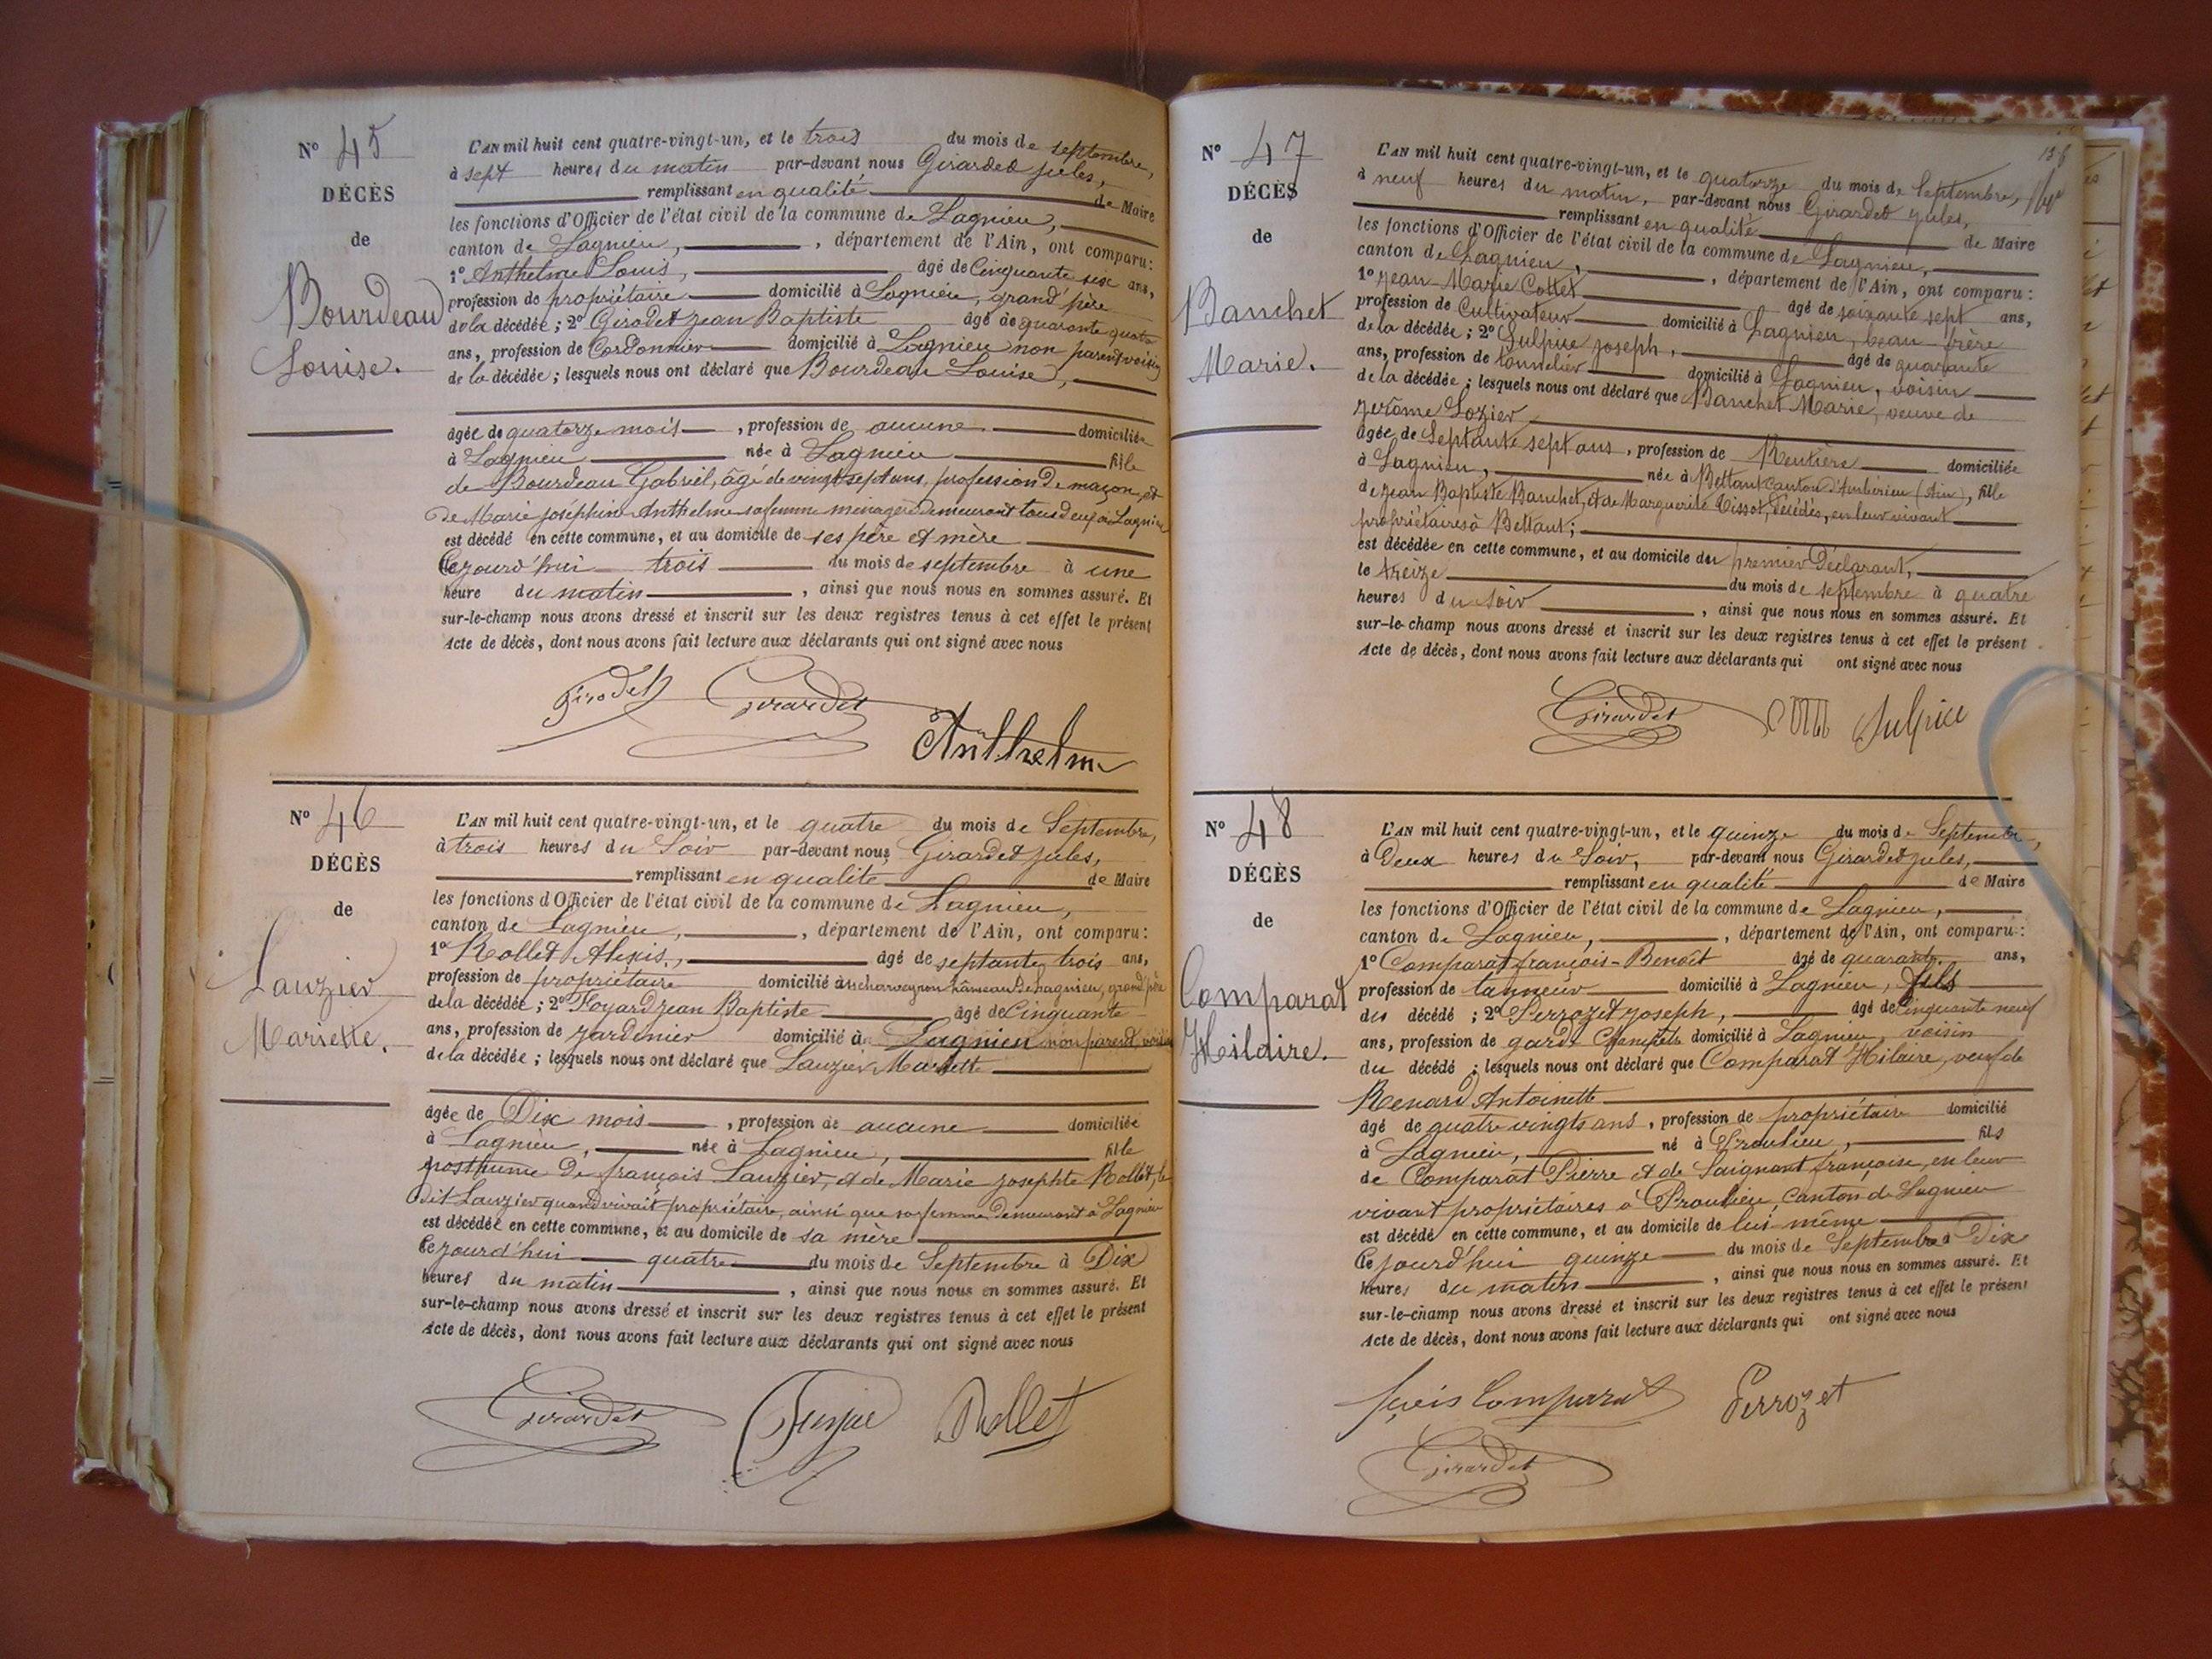 N° 45
DÉCÈS
de
Bourdeau
Louise.
L'AN mil huit cent quatre-vingt-un, et le trois du mois de septembre,
à sept heures du matin par-devant nous Girardet jules,
remplissant en qualité de Maire
les fonctions d'Officier de l'état civil de la commune de Lagnieu,
canton de Lagnieu, , département de l'Ain, ont comparu:
1° Anthelme Louis, âgé de Cinquante six ans,
profession de propriétaire domicilié à Lagnieu, grand père
de la décédée; 2° Girodet jean Baptiste âgé de quarante quatre
ans, profession de Cordonnier domicilié à Lagnieu non parent voisin
de la décédée; lesquels nous ont déclaré que Bourdeau Louise,
âgée de quatorze mois, profession de aucune domiciliée
à Lagnieu née à Lagnieu fille
de Bourdeau Gabriel, âgé de vingt sept ans, profession de maçon, et
de Marie joséphine Anthelme sa femme ménagère demeurant tous deux à Lagnieu
est décédé en cette commune, et au domicile de ses père et mère
Cejourd'hui trois du mois de septembre à une
heure du matin, ainsi que nous nous en sommes assuré. Et
sur-le-champ nous avons dressé et inscrit sur les deux registres tenus à cet effet le présent
Acte de décès, dont nous avons fait lecture aux déclarants qui ont signé avec nous
Girodet Girardet
Anthelm
N° 46
DÉCÈS
de
Lauzier
Mariette.
L'AN mil huit cent quatre-vingt-un, et le quatre du mois de Septembre,
à trois heures du Soir par-devant nous Girardet jules,
remplissant en qualité de Maire
les fonctions d'Officier de l'état civil de la commune de Lagnieu,
canton de Lagnieu, , département de l'Ain, ont comparu:
1° Rollet Alexis, âgé de septante trois ans,
profession de propriétaire domicilié à hâmeau de Lagnieu, grand père
de la décédée; 2° Foyard jean Baptiste âgé de Cinquante
ans, profession de jardinier domicilié à Lagnieu non parent, voisin
de la décédée; lesquels nous ont déclaré que Lauzier Mariette
âgée de Dix mois, profession de aucune domiciliée
à Lagnieu, née à Lagnieu, fille
posthume de françois Lauzier, et de Marie josephte Rollet, le
dit Lauzier quand vivait propriétaire, ainsi que sa femme demeurant à Lagnieu
est décédée en cette commune, et au domicile de sa mère
Cejourd'hui quatre du mois de Septembre à Dix
heures du matin, ainsi que nous nous en sommes assuré. Et
sur-le-champ nous avons dressé et inscrit sur les deux registres tenus à cet effet le présent
Acte de décès, dont nous avons fait lecture aux déclarants qui ont signé avec nous
Girardet Rollet
N° 47
DÉCÈS
de
Banchet
Marie.
L'AN mil huit cent quatre-vingt-un, et le quatorze du mois de Septembre,
à neuf heures du matin, par-devant nous Girardet jules,
remplissant en qualité de Maire
les fonctions d'Officier de l'état civil de la commune de Lagnieu,
canton de Lagnieu, , département de l'Ain, ont comparu:
1° jean-Marie Collet âgé de soixante sept ans,
profession de Cultivateur domicilié à Lagnieu, beau-frère
de la décédée; 2° Sulpice joseph, âgé de quarante
ans, profession de tonnelier domicilié à Lagnieu, voisin
de la décédée; lesquels nous ont déclaré que Banchet Marie, veuve de
jérôme Lozier
âgée de Septante sept ans, profession de Rentière domiciliée
à Lagnieu, née à Bettant Canton d'Ambérieu (Ain), fille
de jean Baptiste Banchet, et de Marguerite Tissot, décédés, en leur vivant
propriétaires à Bettant;
est décédée en cette commune, et au domicile du premier Déclarant,
le treize du mois de septembre à quatre
heures du Soir, ainsi que nous nous en sommes assuré. Et
sur-le-champ nous avons dressé et inscrit sur les deux registres tenus à cet effet le présent
Acte de décès, dont nous avons fait lecture aux déclarants qui ont signé avec nous
Girardet Sulpice
N° 48
DÉCÈS
de
Comparat
Hilaire.
L'AN mil huit cent quatre-vingt-un, et le quinze du mois de Septembre,
à Deux heures du Soir, par-devant nous Girardet jules,
remplissant en qualité de Maire
les fonctions d'Officier de l'état civil de la commune de Lagnieu,
canton de Lagnieu, , département de l'Ain, ont comparu:
1° Comparat françois-Benoît âgé de quarante ans,
profession de tanneur domicilié à Lagnieu, fils
du décédé; 2° Perrozet joseph, âgé de Cinquante neuf
ans, profession de garde Champêtre domicilié à Lagnieu, voisin
du décédé; lesquels nous ont déclaré que Comparat Hilaire, veuf de
Renard Antoinette
âgé de quatre vingts ans, profession de propriétaire domicilié
à Lagnieu, né à Proulieu, fils
de Comparat Pierre et de Saignant françoise, en leur
vivant propriétaires à Proulieu, Canton de Lagnieu
est décédé en cette commune, et au domicile de lui même
Cejourd'hui quinze du mois de Septembre à Dix
heures du matin, ainsi que nous nous en sommes assuré. Et
sur-le-champ nous avons dressé et inscrit sur les deux registres tenus à cet effet le présent
Acte de décès, dont nous avons fait lecture aux déclarants qui ont signé avec nous
Comparat Perrozet
Girardet